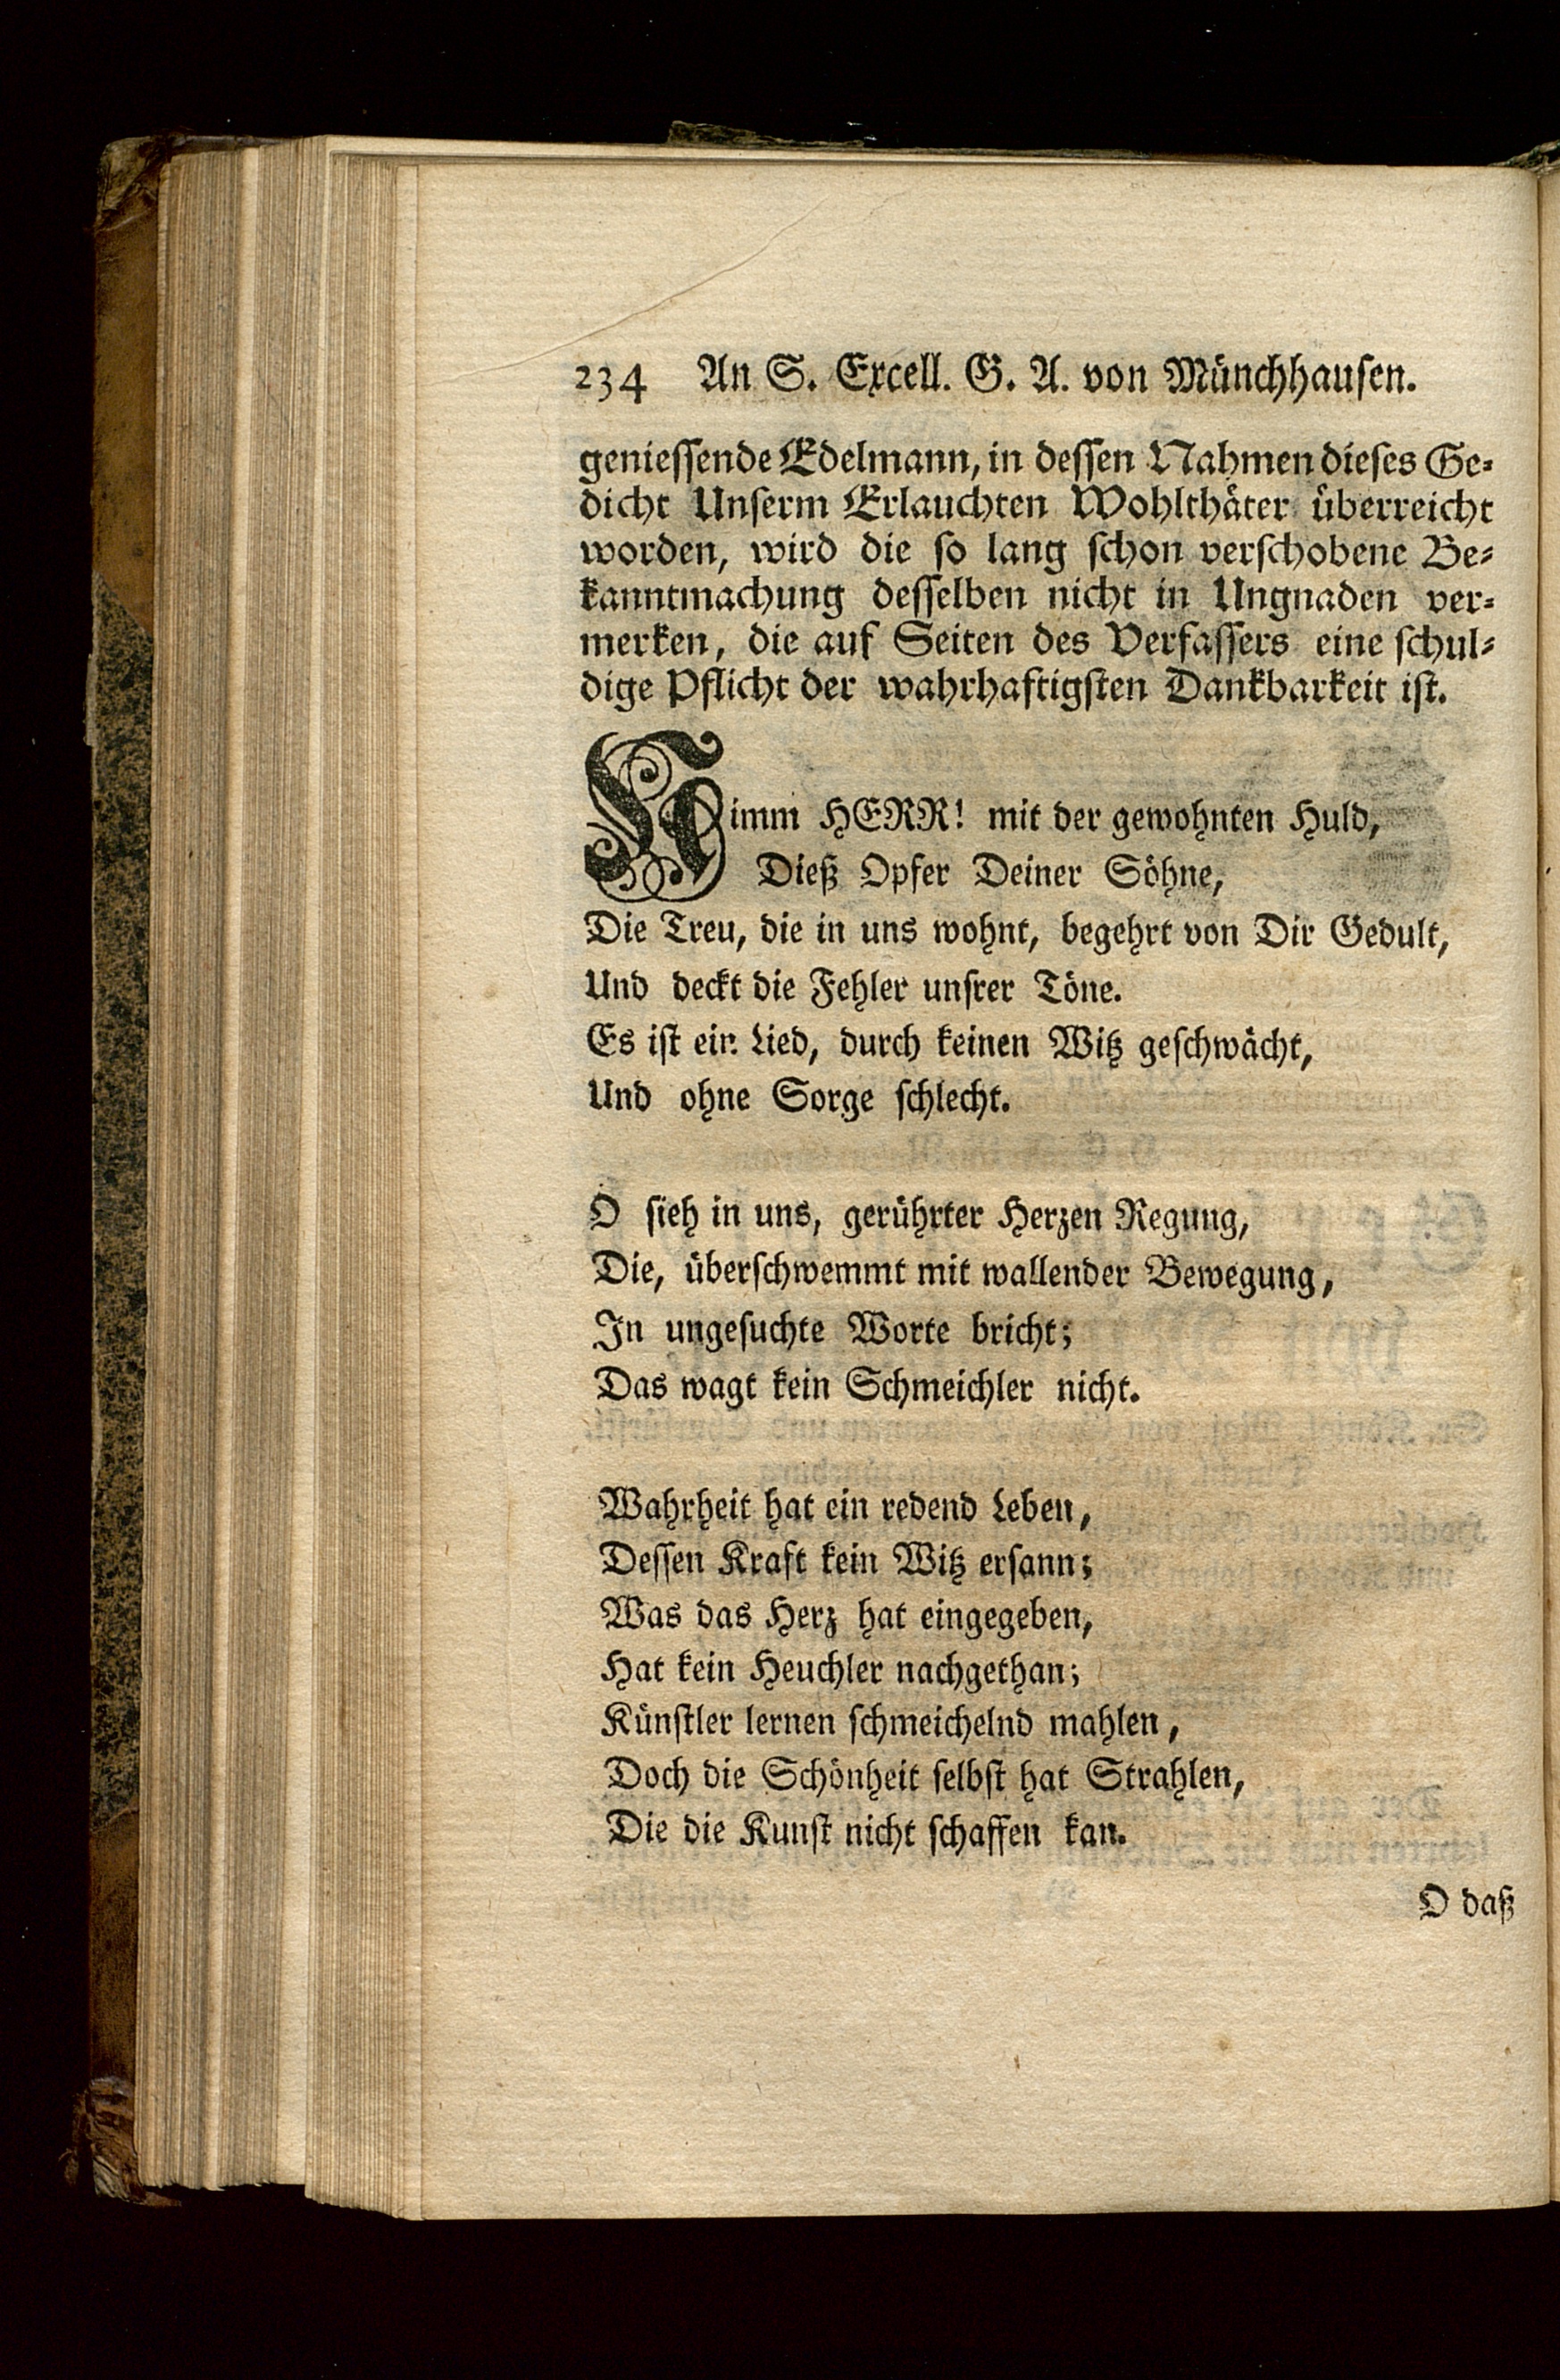 234 An S. Excell. G. A. von Münchhausen.
geniessende Edelmann, in dessen Nahmen dieses Ge-
dicht Unserm Erlauchten Wohlthäter überreicht
worden, wird die so lang schon verschobene Be-
kanntmachung desselben nicht in Ungnaden ver-
merken, die auf Seiten des Verfassers eine schul-
dige Pflicht der wahrhaftigsten Dankbarkeit ist.
Nimm HERR! mit der gewohnten Huld,
Dieß Opfer Deiner Söhne,
Die Treu, die in uns wohnt, begehrt von Dir Gedult,
Und deckt die Fehler unsrer Töne.
Es ist ein Lied, durch keinen Witz geschwächt,
Und ohne Sorge schlecht.
O sieh in uns, gerührter Herzen Regung,
Die, überschwemmt mit wallender Bewegung,
In ungesuchte Worte bricht;
Das wagt kein Schmeichler nicht.
Wahrheit hat ein redend Leben,
Dessen Kraft kein Witz ersann;
Was das Herz hat eingegeben,
Hat kein Heuchler nachgethan;
Künstler lernen schmeichelnd mahlen,
Doch die Schönheit selbst hat Strahlen,
Die die Kunst nicht schaffen kan.
O daß